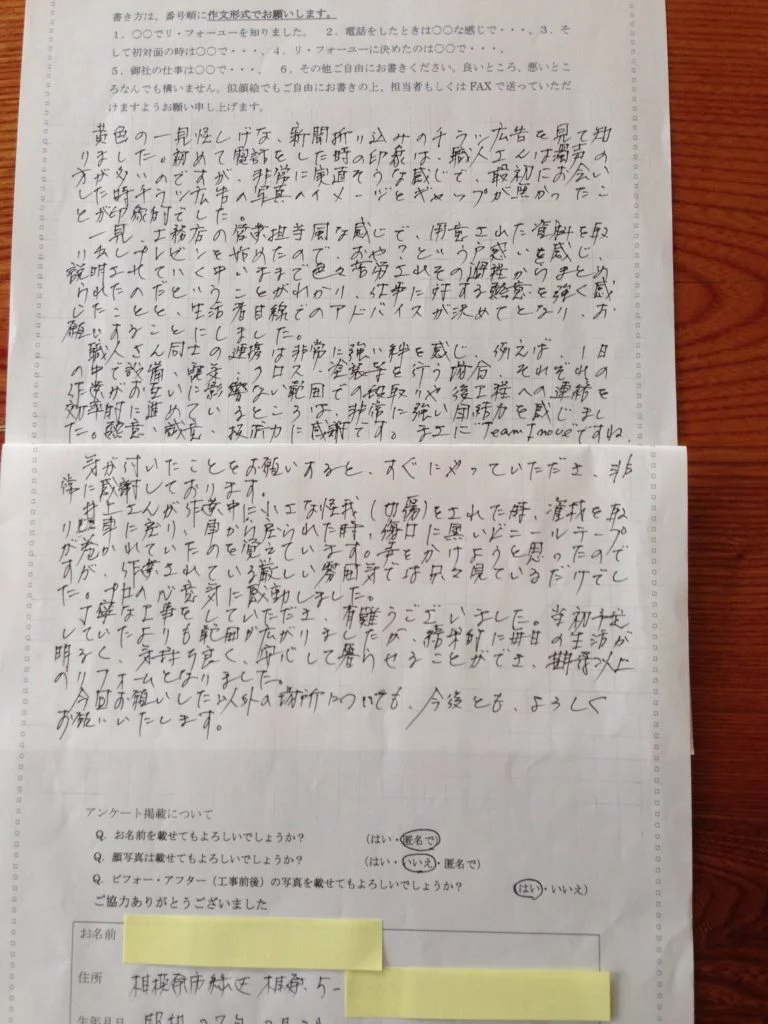 書き方は、番号順に作文形式でお願いします。
1．〇〇でリ・フォーユーを知りました。　2．電話をしたときは〇〇な感じで・・・、3．そ
して初対面の時は〇〇で・・・、4．リ・フォーユーに決めたのは〇〇で・・・、
5．御社の仕事は〇〇で・・・、　6．その他ご自由にお書きください。良いところ、悪いとこ
ろなんでも構いません。似顔絵でもご自由にお書きの上、担当者もしくは FAX で送っていただ
けますようお願い申し上げます。
黄色の一見怪しげな、新聞折り込みのチラシ広告を見て知
りました。初めて電話をした時の印象は、職人さんは濁声の
方が多いのですが、非常に実直そうな感じで、最初にお会い
した時チラシ広告の写真のイメージとギャップが無かったこ
とが印象的でした。
一見、工務店の営業担当風な感じで、用意された資料を取
り出しプレゼンを始めたので、おや？という戸惑いを感じ、
説明されていく中いままで色々苦労されその過程からまとめ
られたのだということがわかり、仕事に対する熱意を強く感
じたことと、生活者目線でのアドバイスが決めてとなり、お
願いすることにしました。
職人さん同士の連携は非常に強い絆を感じ、例えば、1日
の中で設備、電気、クロス、塗装等を行う場合、それぞれの
作業がお互いに影響ない範囲での段取りや後工程への連絡を
効率的に進めているところは、非常に強い団結力を感じまし
た。熱意・誠意・技術力に感謝です。まさに"Team Inoue"ですね。
気が付いたことをお願いすると、すぐにやっていただき、非
常に感謝しております。
井上さんが作業中に小さな怪我(切傷)をされた時、資材を取
り駐車に戻り、車から戻られた時、傷口に黒いビニールテープ
が巻かれていたのを覚えています。声をかけようと思ったので
すが、作業されている厳しい雰囲気では只々見ているだけでし
た。プロの心意気に感動しました。
丁寧な工事をしていただき、有難うございました。当初予定
していたよりも範囲が広がりましたが、結果的に毎日の生活が
明るく、気持ち良く、安心して暮らせることができ、期待以上
のリフォームとなりました。
今回お願いした以外の場所についても、今後とも、よろしく
お願いいたします。
アンケート掲載について
Q. お名前を載せてもよろしいでしょうか？　（はい・匿名で）
Q. 顔写真は載せてもよろしいでしょうか？　（はい・いいえ・匿名で）
Q. ビフォー・アフター（工事前後）の写真を載せてもよろしいでしょうか？　（はい・いいえ）
ご協力ありがとうございました
お名前
住所　相模原市緑区 相原 5-
生年月日　昭和 27年